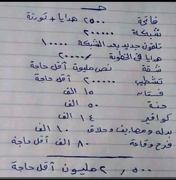 فاتحة ٢٥٠٠ هدايا + تورتة
شبكة ٢٠٠٠٠٠
تلفون جديد بعد الشبكة ١٠٠٠٠
هدايا في الخطوبة ٢٠٠٠٠
شقة نص مليون أقل حاجة
تشطيب ٢٠٠٠٠٠ أقل حاجة
فستان ١٥ الف
حنة ٥٠ الف
كوافير ١٤ الف
بدله و معازيم وحلاق ١٠ الف
فرح وقاعة ٨٠ الف أقل حاجه
٢,٥٠٠ مليون أقل حاجة